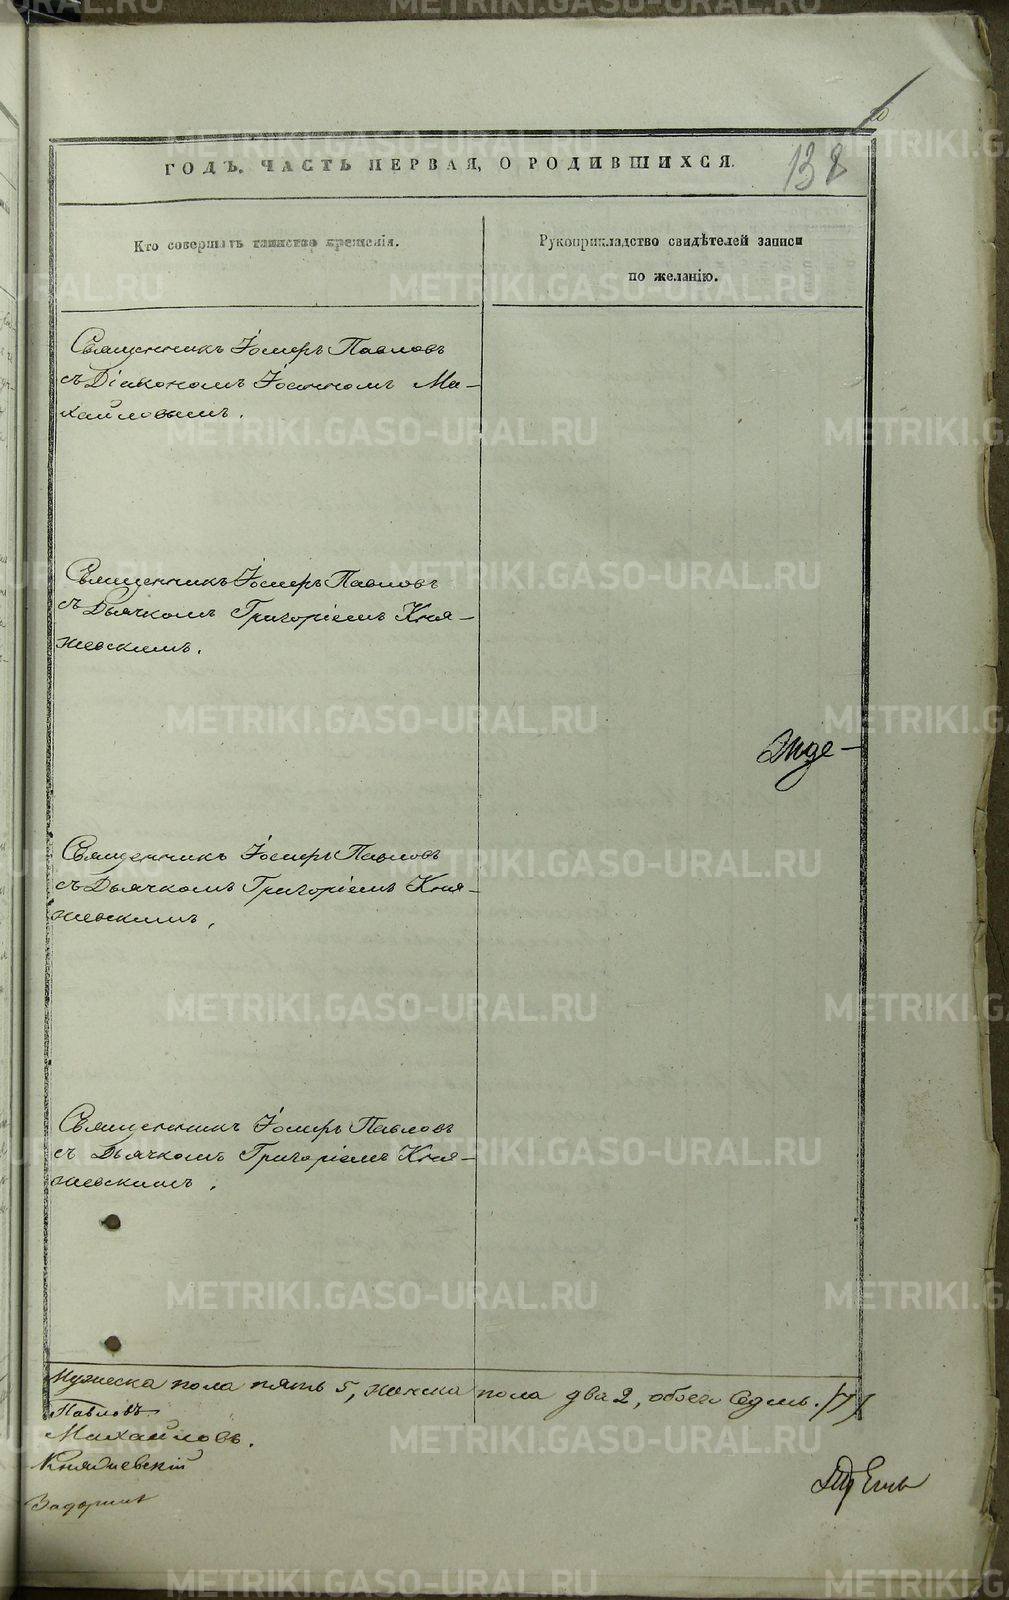 138
ГОДЪ, ЧАСТЬ ПЕРВАЯ, О РОДИВШИХСЯ.
Кто совершалъ таинство крещенія.
Рукоприкладство свидѣтелей записи
по желанію.
Священникъ Іосифъ Павловъ
съ Діакономъ Іоанномъ Ми-
хайловымъ.
Священникъ Іосифъ Павловъ
съ Дьячкомъ Григоріемъ Кня-
жевскимъ.
Священникъ Іосифъ Павловъ
съ Дьячкомъ Григоріемъ Кня-
жевскимъ,
Священникъ Іосифъ Павловъ
съ Дьячкомъ Григоріемъ Кня-
жевскимъ,
Мужеска пола пять 5, женска пола два 2, обоего Седмь. /7/
Павловъ
Михайловъ.
Княжевскій
METRIKI.GASO-URAL.RU